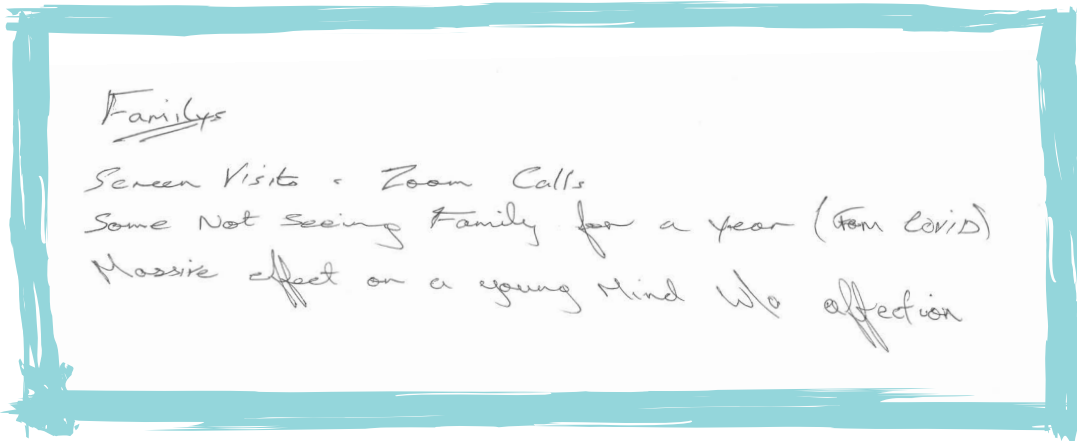 Familys
Screen Visits - Zoom Calls
Some Not seeing Family for a year (From COVID)
Massive effect on a young Mind W/o affection